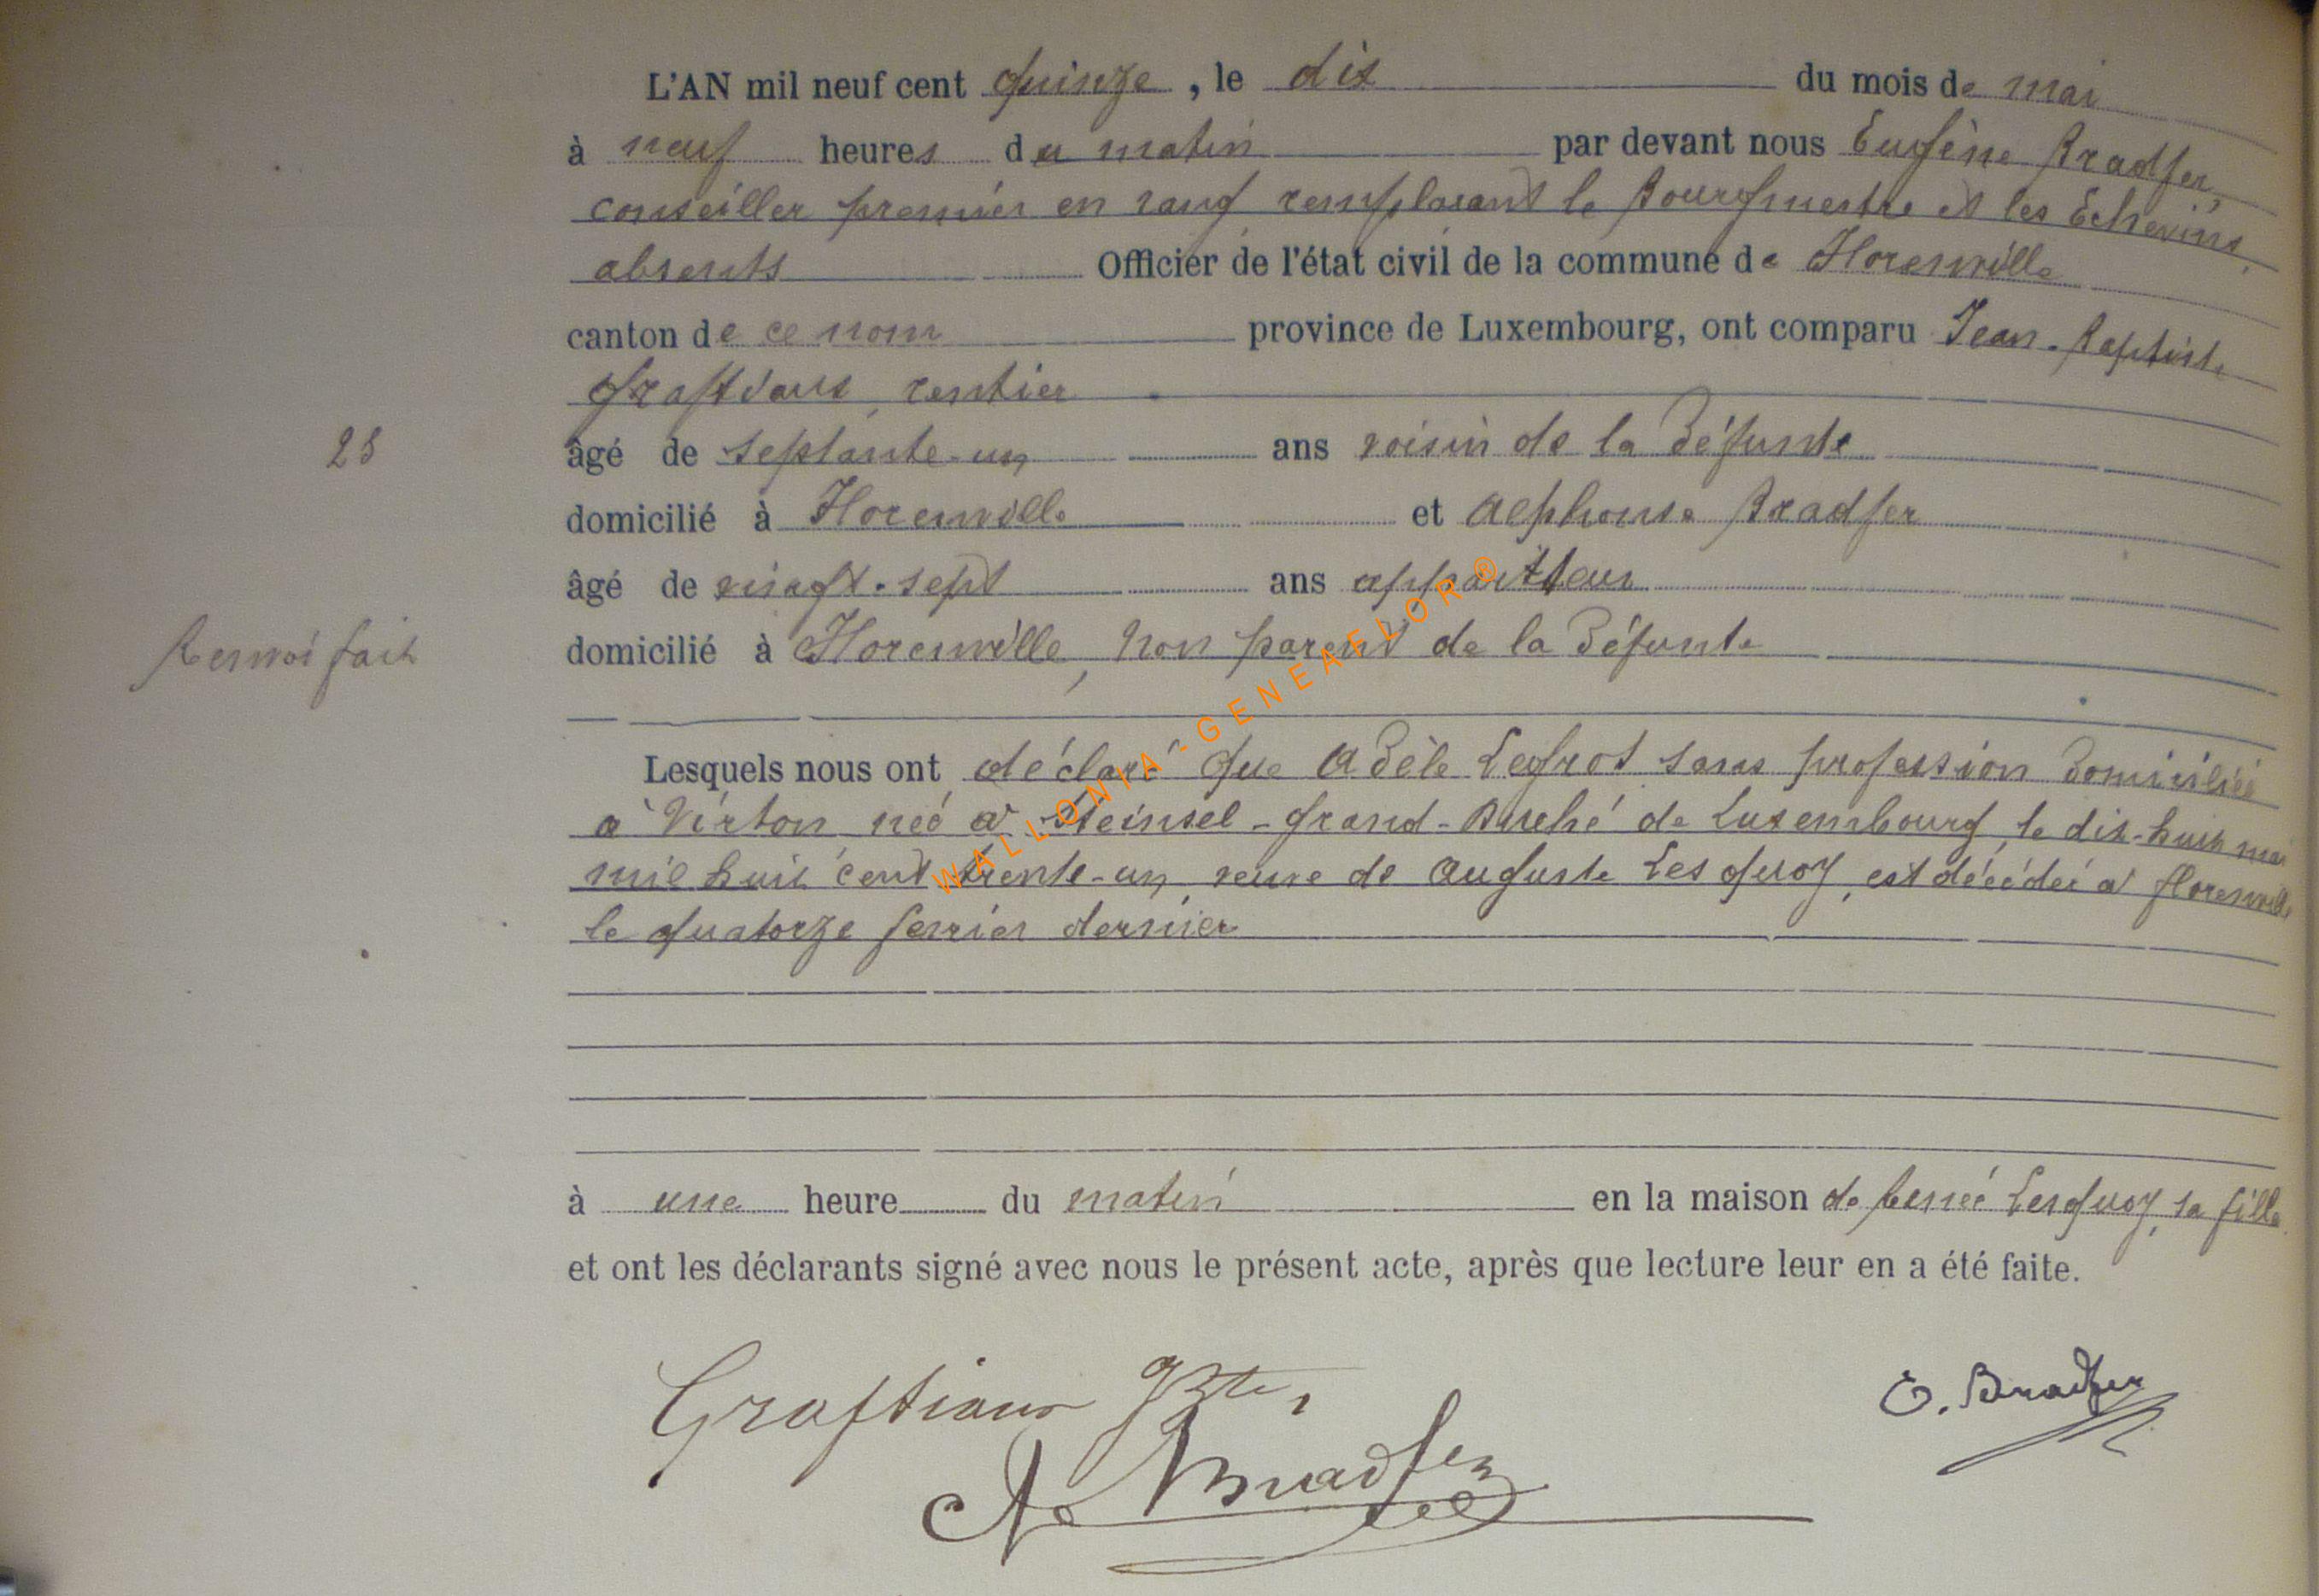 L'AN mil neuf cent quinze, le dix du mois de mai
à neuf heures du matin par devant nous Eugène Bradfer,
conseiller premier en rang remplaçant le Bourgmestre et les Echevins
absents Officier de l'état civil de la commune de Florenville
canton de ce nom province de Luxembourg, ont comparu Jean-Baptiste
Graftiaux, rentier
23 âgé de septante-un ans voisin de la défunte
domicilié à Florenville et Alphonse Bradfer
âgé de vingt-sept ans appariteur
Renvoi fait domicilié à Florenville, non parent de la défunte
Lesquels nous ont déclaré que Adèle Legros sans profession domiciliée
à Virton née à Steinsel-Grand-Duché de Luxembourg, le dix-huit mai
mil huit cent trente-un, veuve de Auguste Lesquoy, est décédée à Florenville
le quatorze février dernier
à une heure du matin en la maison de Renée Lesquoy, sa fille
et ont les déclarants signé avec nous le présent acte, après que lecture leur en a été faite.
Graftiaux JBte
E. Bradfer
Al Bradfer
WALLONIA-GENEAFLOR®